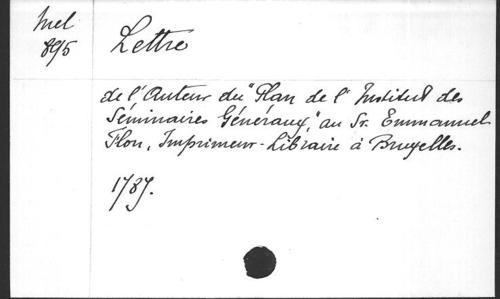 Mel
895
Lettre
de l'Auteur du "Plan de l'Institut des
Séminaires Généraux," au Sr. Emmanuel
Flon, Imprimeur-Libraire à Bruxelles.
1787.